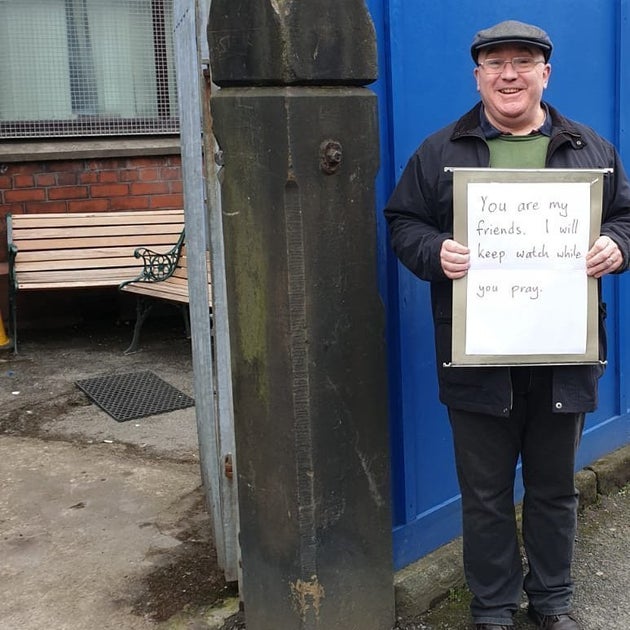 You are my
friends. I will
keep watch while
you pray.